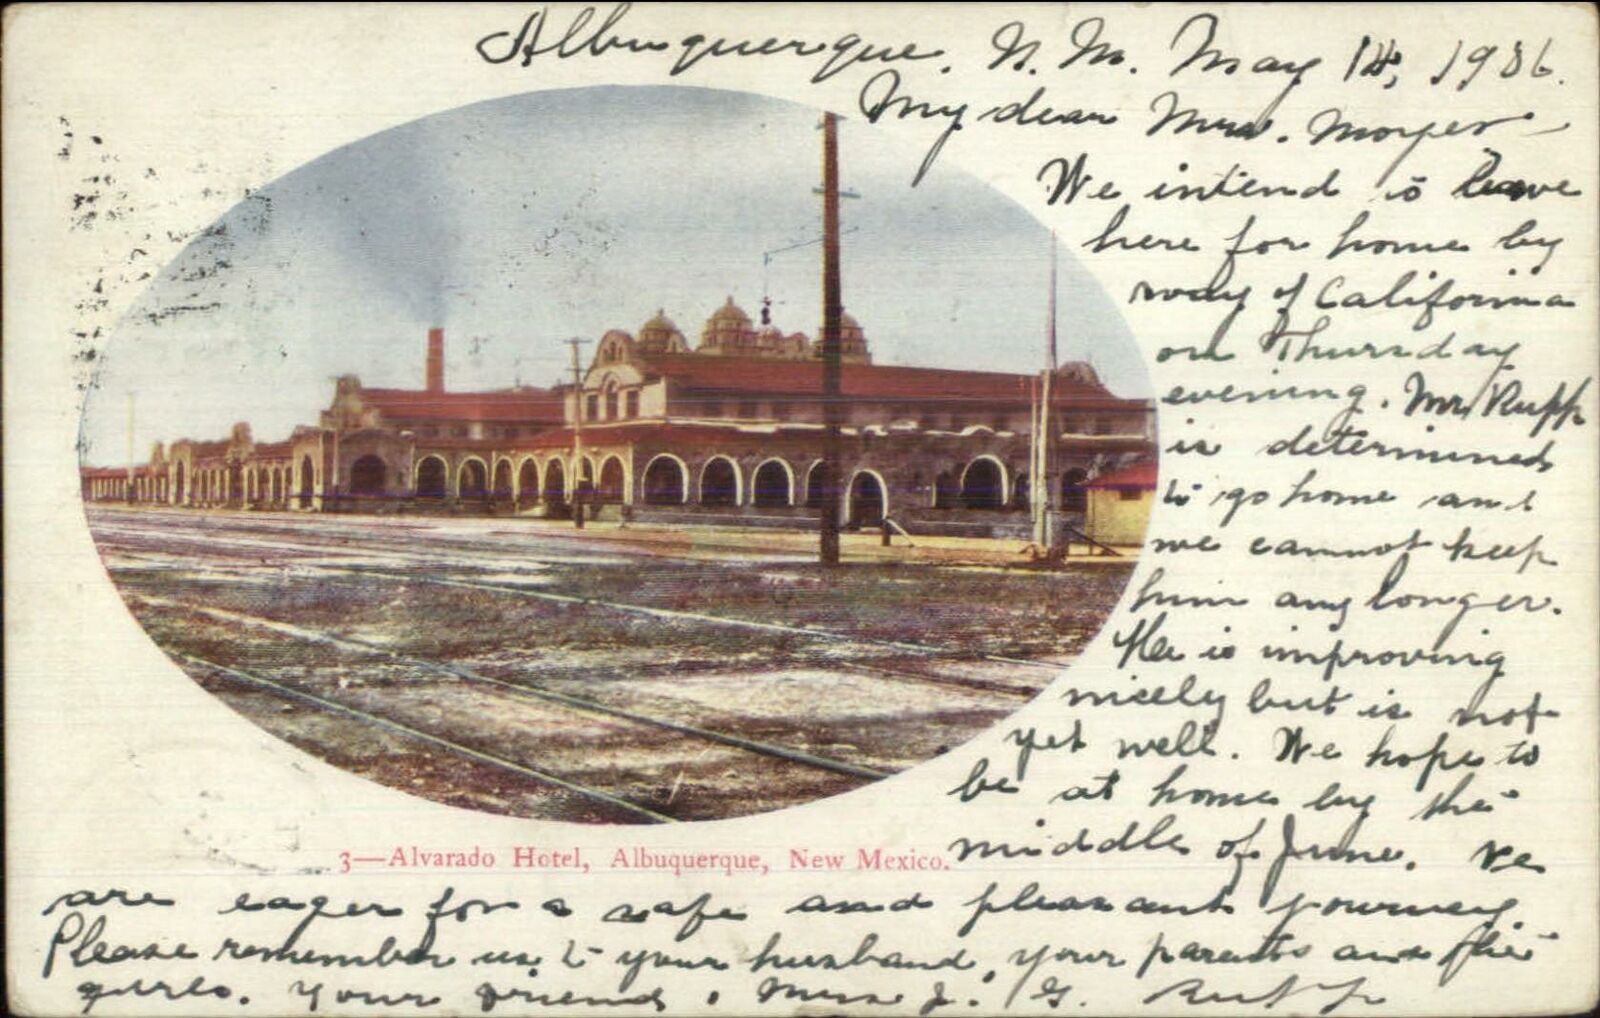 Albuquerque, N. M. May 14, 1906.
My dear Mrs. Moyer
We intend to leave
here for home by
way of California
on Thursday
evening. Mr Rupp
is determined
to go home and
we cannot keep
him any longer.
He is improving
nicely but is not
yet well. We hope to
be at home by the
middle of June. We
are eager for a safe and pleasant journey.
Please remember us to your husband, your parents and the
girls. Your friend, Mrs. J. G. Rupp
3—Alvarado Hotel, Albuquerque, New Mexico.